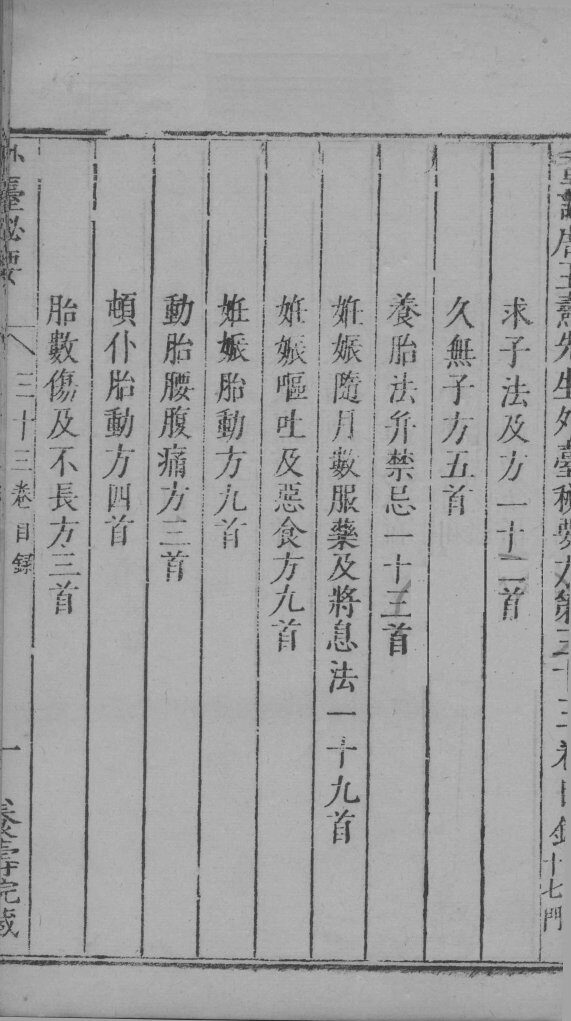 重訂唐王燾先生外臺秘要方第三十三卷目錄十七門
求子法及方一十二首
久無子方五首
養胎法并禁忌一十三首
姙娠隨月數服藥及將息法一十九首
姙娠嘔吐及惡食方九首
姙娠胎動方九首
動胎腰腹痛方三首
頓仆胎動方四首
胎數傷及不長方三首
外臺祕要 三十三卷目錄 一 養壽院藏